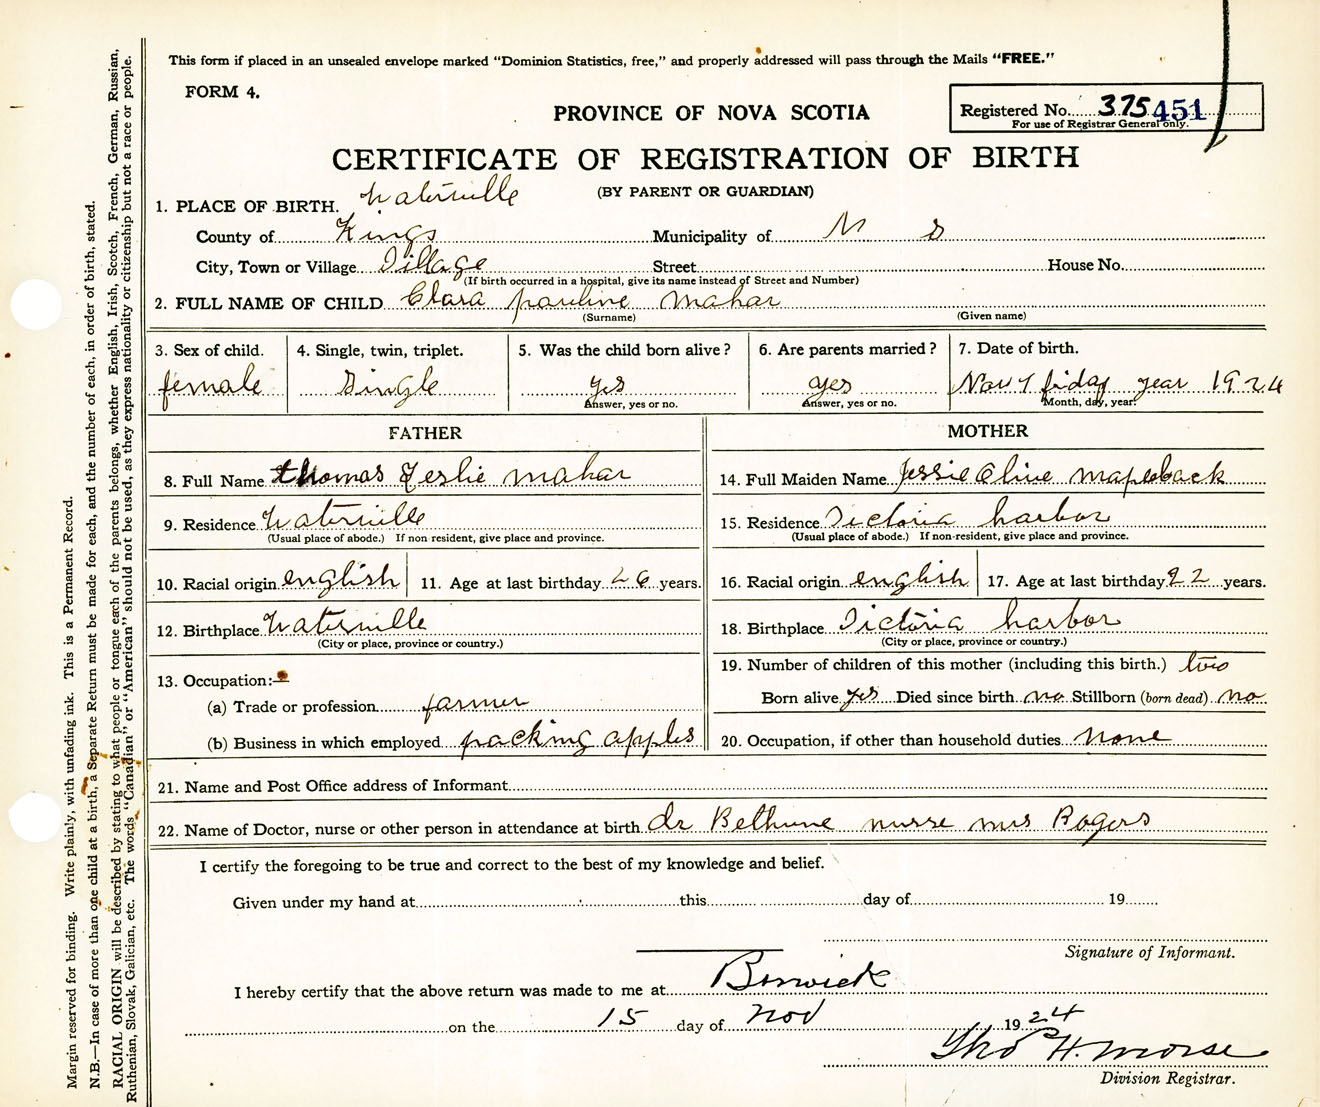 This form if placed in an unsealed envelope marked "Dominion Statistics, free," and properly addressed will pass through the Mails "FREE."
FORM 4.
PROVINCE OF NOVA SCOTIA
Registered No. 375 451
For use of Registrar General only.
CERTIFICATE OF REGISTRATION OF BIRTH
(BY PARENT OR GUARDIAN)
1. PLACE OF BIRTH. Waterville
County of Kings Municipality of N S
City, Town or Village Village Street House No.
(If birth occurred in a hospital, give its name instead of Street and Number)
2. FULL NAME OF CHILD Clara pauline mahar
(Surname) (Given name)
3. Sex of child. 4. Single, twin, triplet. 5. Was the child born alive? 6. Are parents married? 7. Date of birth.
female Single yes yes Nov 7 friday year 1924
Answer, yes or no. Answer, yes or no. Month, day, year.
FATHER MOTHER
8. Full Name thomas Leslie mahar 14. Full Maiden Name Jessie Olive mapleback
9. Residence Waterville 15. Residence Victoria harbor
(Usual place of abode.) If non-resident, give place and province. (Usual place of abode.) If non-resident, give place and province.
10. Racial origin english 11. Age at last birthday 26 years. 16. Racial origin english 17. Age at last birthday 22 years.
12. Birthplace Waterville 18. Birthplace Victoria harbor
(City or place, province or country.) (City or place, province or country.)
13. Occupation:— 19. Number of children of this mother (including this birth.) two
(a) Trade or profession farmer Born alive yes Died since birth no Stillborn (born dead) no
(b) Business in which employed packing apples 20. Occupation, if other than household duties none
21. Name and Post Office address of Informant
22. Name of Doctor, nurse or other person in attendance at birth dr Bethune nurse mrs Rogers
I certify the foregoing to be true and correct to the best of my knowledge and belief.
Given under my hand at this day of 19
Signature of Informant.
I hereby certify that the above return was made to me at Berwick
on the 15 day of Nov 1924
Thos H. Morse
Division Registrar.
Margin reserved for binding. Write plainly, with unfading ink. This is a Permanent Record.
N.B.—In case of more than one child at a birth, a Separate Return must be made for each, and the number of each, in order of birth, stated.
RACIAL ORIGIN will be described by stating to what people or tongue each of the parents belongs, whether English, Irish, Scotch, French, German, Russian,
Ruthenian, Slovak, Galician, etc. The words "Canadian" or "American" should not be used, as they express nationality or citizenship but not a race or people.